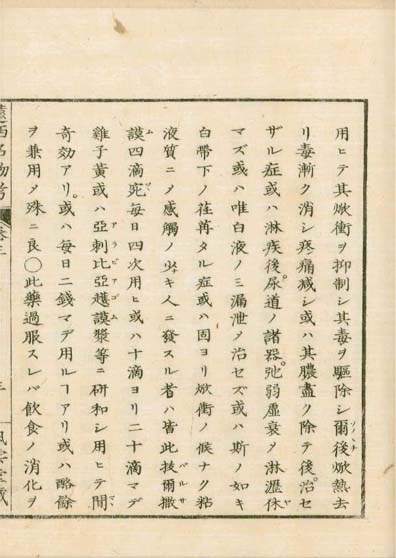 用ヒテ其焮衝ヲ抑制シ其毒ヲ驅除シ爾後焮熱去
リ毒漸ク消シ疼痛減シ或ハ其膿盡ク除テ後治セ
ザル症或ハ淋疾後尿道ノ諸器弛弱虚衰ノ淋瀝休
マズ或ハ唯白液ノミ漏泄メ治セズ或ハ斯ノ如キ
白帶下ノ荏苒タル症或ハ固ヨリ焮衝ノ候ナク粘
液質ニメ感觸ノ少キ人ニ發スル者ハ皆此拔爾撒
謨四滴宛毎日四次用ヒ或ハ十滴ヨリ二十滴マデ
雞子黄或ハ亞刺比亞護謨漿等ニ研和シ用ヒテ間
奇効アリ或ハ毎日二錢マデ用ルヿアリ或ハ酪餘
ヲ兼用メ殊ニ良〇此藥過服スレバ飲食ノ消化ヲ
西名物考 卷三